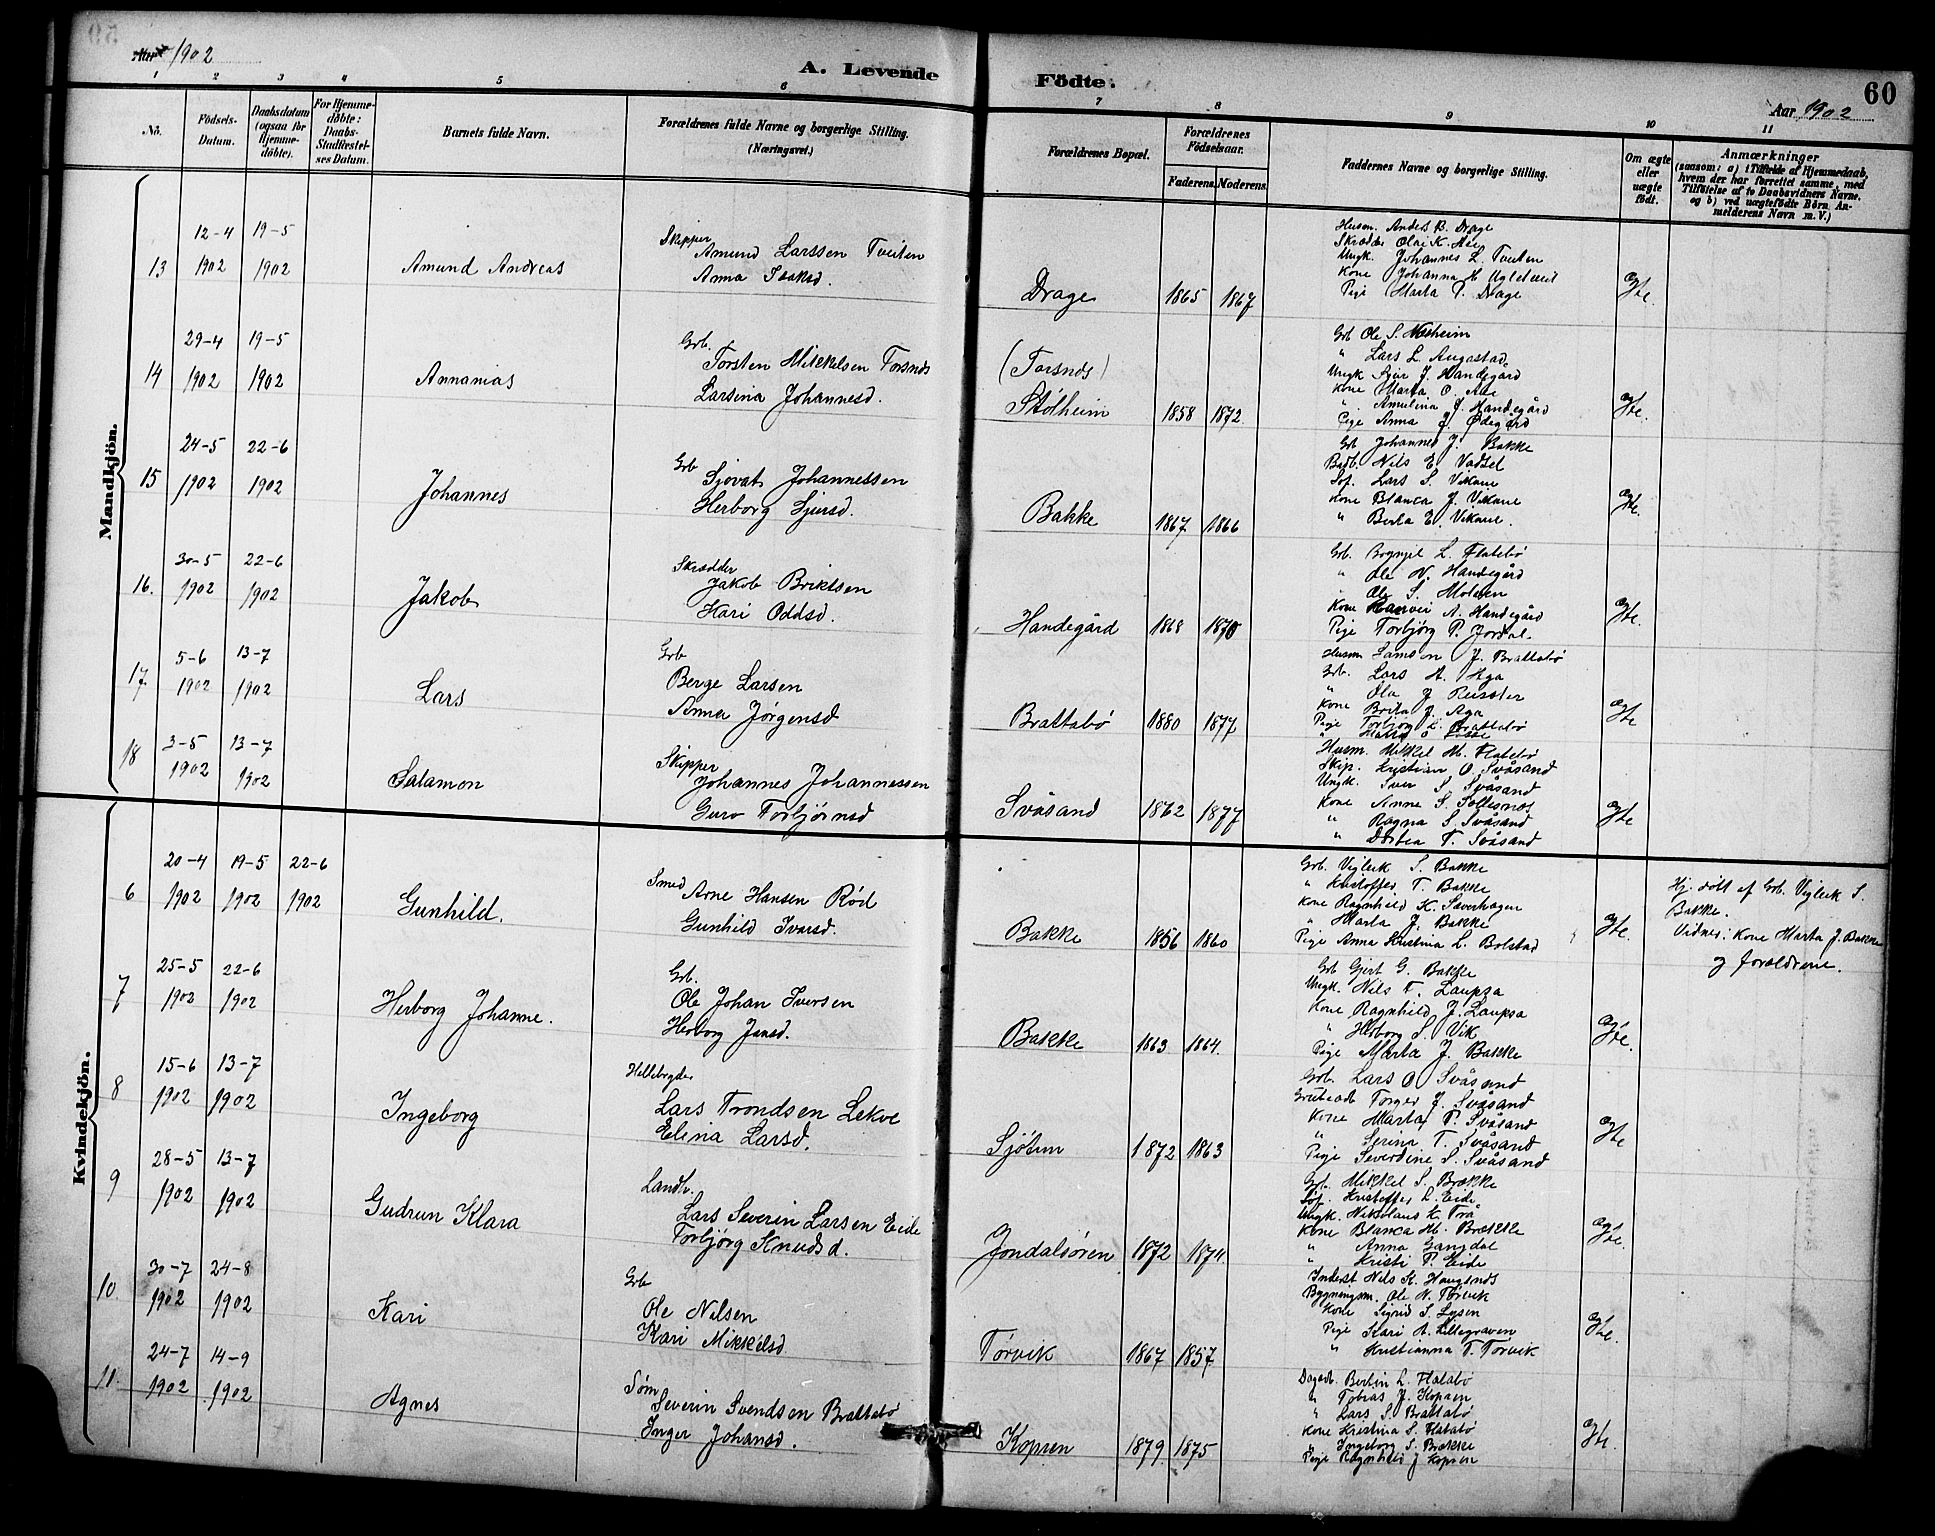 Aar 1902
A. Levende Födte.
60
Aar 1902
1 2 3 4 5 6 7 8 9 10 11
No.
Födsels-Datum.
Daabsdatum (ogsaa for Hjemme-döbte).
For Hjemme-döbte: Daabs-Stadfæstel-ses Datum.
Barnets fulde Navn.
Forældrenes fulde Navne og borgerlige Stilling.
(Næringsvei.)
Forældrenes Bopæl.
Forældrenes Födselsaar.
Faderens. Moderens.
Faddernes Navne og borgerlige Stilling.
Om ægte eller uægte födt.
Anmærkninger
(saasom: a) i Tilfælde af Hjemmedaab,
hvem der har forrettet samme, med
Tilföielse af to Daabsvidners Navne.
og b) ved uægtefödte Börn An-
melderens Navn m. V.)
Mandkjön.
13
12-4 1902
19-5 1902
Amund Andreas
Skipper
Amund Larssen Tveiten
Anna Isaksd.
Drage
1865 1867
Husm. Anders B. Drage
Skrædder Olai K. Aae
Ungk. Johannes L. Tveiten
Kone Johanna H. Ugletveit
Pige Marta T. Drage
Ægte.
14
29-4 1902
19-5 1902
Annanias
Grb.
Torsten Mikkelsen Torsnes
Larsina Johannesd.
(Torsnes)
Stølheim
1858 1872.
Grb Ole S. Næsheim
" Lars L. Augastad
Ungk Sjur J. Handegård
Kone Marta O. Aae
" Amelina J. Handegård
Pige Anna J. Ødegård
Ægte.
15
24-5 1902
22-6 1902
Johannes
Grb
Sjovat Johannessen
Herborg Sjursd.
Bakke
1867 1866
Grb Johannes J. Bakke
Nils E. Vadsel
Lars S. Vikane
Kone Blanca J. Vikane
" Berta E. Vikane.
Ægte.
16.
30-5 1902
22-6 1902
Jakob
Skrædder
Jakob Briktsen
Kari Oddsd.
Handegård
1868 1870
Grb. Bognjel L. Flatebø
" Ole N. Handegård
" Ole S. Molven
Kone Ranvei A. Handegård
Pige Torbjørg P. Jordal.
Ægte.
17.
5-6 1902
13-7 1902
Lars
Grb
Berge Larsen
Anna Jørgensd
Brattabø
1880 1877
Husm Samson J. Brattabø
Grb. Lars H. Aga
" Ola J Reisæter
Kone Brita J Aga
Pige Torbjørg L. Brattabø
Ægte
18
3-5 1902
13-7 1902
Salamon
Skipper
Johannes Johannessen
Guro Torbjørnsd
Svåsand
1862 1877
Husm. Mikkel M. Flatebø
Skip. Kristian O Svåsand
Ungk. Sver S. Svåsand
Kone Anne S. Solesnes
" Ragna S. Svåsand
" Dortea T. Svåsand
Ægte
Kvindekjön.
6
20-4 1902
19-5 1902
22-6 1902
Gunhild.
Smed
Arne Hansen Rød
Gunhild Ivarsd.
Bakke
1856 1860
Grb. Vigleik S. Bakke
" Kristoffer T. Bakke
Kone Ragnhild K. Sæverhagen
" Marta J. Bakke
Pige Anna Kristina L. Bolstad
Ægte.
Hj. døbt af Grb. Vigleik S.
Bakke.
Vidner: Kone Marta J. Bakke
og forældrene.
7
25-5 1902
22-6 1902
Herborg Johanne.
Grb.
Ole Johan Iversen
Herborg Jansd.
Bakke
1863 1864.
Grb Gjert G. Bakke
Ungk. Nils T. Laupsa
Kone Ragnhild J. Laupsa
" Herborg S. Vik
Pige Marta J. Bakke
Ægte.
8
15-6 1902
13-7 1902
Ingeborg
Hellebryder
Lars Trondsen Lekve
Elina Larsd.
Sjøtun
1872 1863
Grb. Lars O Svåsand
Torger J. Svåsand
Kone Marta P. Svåsand
" Serina T. Svåsand
Pige Severdine S. Svåsand
Ægte
9
28-5 1902
13-7 1902
Gudrun Klara
Landh.
Lars Severin Larsen Eide
Torbjørg Knudsd.
Jondalsøren
1872 1874.
Grb. Mikkel S. Brække
Kristoffer L. Eide
Ungk. Nikolaus K. Trå
Kone Blanca M. Brække
" Anna Gangdal
" Kristi P. Eide
Ægte.
10
30-7 1902
24-8 1902
Kari
Grb
Ole Nilsen
Kari Mikkelsd.
Tørvik
1867 1857.
Inderst Nils K. Haugsnes
Bygningsm. Ole N. Tørvik
Kone Sigrid S. Lysen
Pige Kari A. Lillegraven
" Kristianna T. Tørvik
Ægte.
11.
24-7 1902
14-9 1902
Agnes
Søm.
Severin Svendsen Brattebø
Inger Johansd.
Kopren
1879 1875
Dagarb. Bertin L. Flatabø
" Tobias J. Kopren
" Lars S. Brattabø
Kone Kristina S. Flatabø
" Ingeborg S. Brække
Pige Ragnhild J Kopren
Ægte.